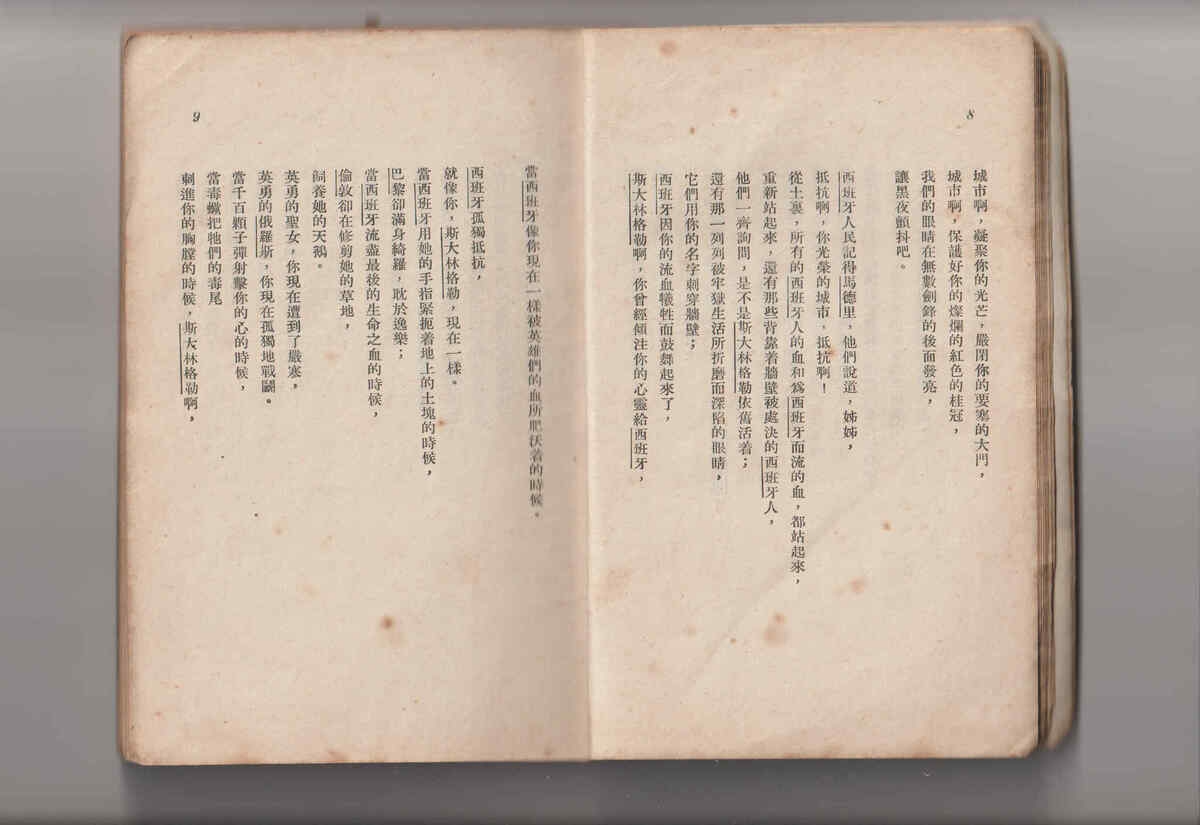 8
城市啊，凝聚你的光芒，嚴閉你的要塞的大門，
城市啊，保護好你的燦爛的紅色的桂冠，
我們的眼睛在無數劍鋒的後面發亮，
讓黑夜顫抖吧。
西班牙人民記得馬德里，他們說道，姊姊，
抵抗啊，你光榮的城市，抵抗啊！
從土裏，所有的西班牙人的血和爲西班牙而流的血，都站起來，
重新站起來，還有那些背靠着牆壁被處決的西班牙人，
他們一齊詢問，是不是斯大林格勒依舊活着；
還有那一列列被牢獄生活所折磨而深陷的眼睛，
它們用你的名字刺穿牆壁；
西班牙因你的流血犧牲而鼓舞起來了，
斯大林格勒啊，你曾經傾注你的心靈給西班牙，
當西班牙像你現在一樣被英雄們的血所肥沃着的時候。
西班牙孤獨抵抗，
就像你，斯大林格勒，現在一樣。
當西班牙用她的手指緊扼着地上的土塊的時候，
巴黎卻滿身綺羅，耽於逸樂；
當西班牙流盡最後的生命之血的時候，
倫敦卻在修剪她的草地，
飼養她的天鵝。
英勇的聖女，你現在遭到了嚴寒，
英勇的俄羅斯，你現在孤獨地戰鬪。
當千百顆子彈射擊你的心的時候，
當毒蠍把牠們的毒尾
刺進你的胸膛的時候，斯大林格勒啊，
9